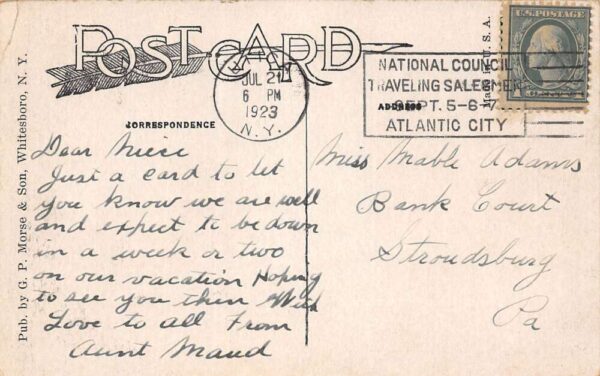 POST CARD
JUL 21
6 PM
1923
N.Y.
NATIONAL COUNCIL
TRAVELING SALESMEN
SEPT. 5-6-7
ATLANTIC CITY
U.S. POSTAGE
Made in U. S. A.
ADDRESS
CORRESPONDENCE
Dear Niece
Just a card to let
you know we are well
and expect to be down
in a week or two
on our vacation Hoping
to see you then With
Love to all From
Aunt Maud
Miss Mable Adams
Bank Court
Stroudsburg
Pa
Pub. by G. P. Morse & Son, Whitesboro, N. Y.